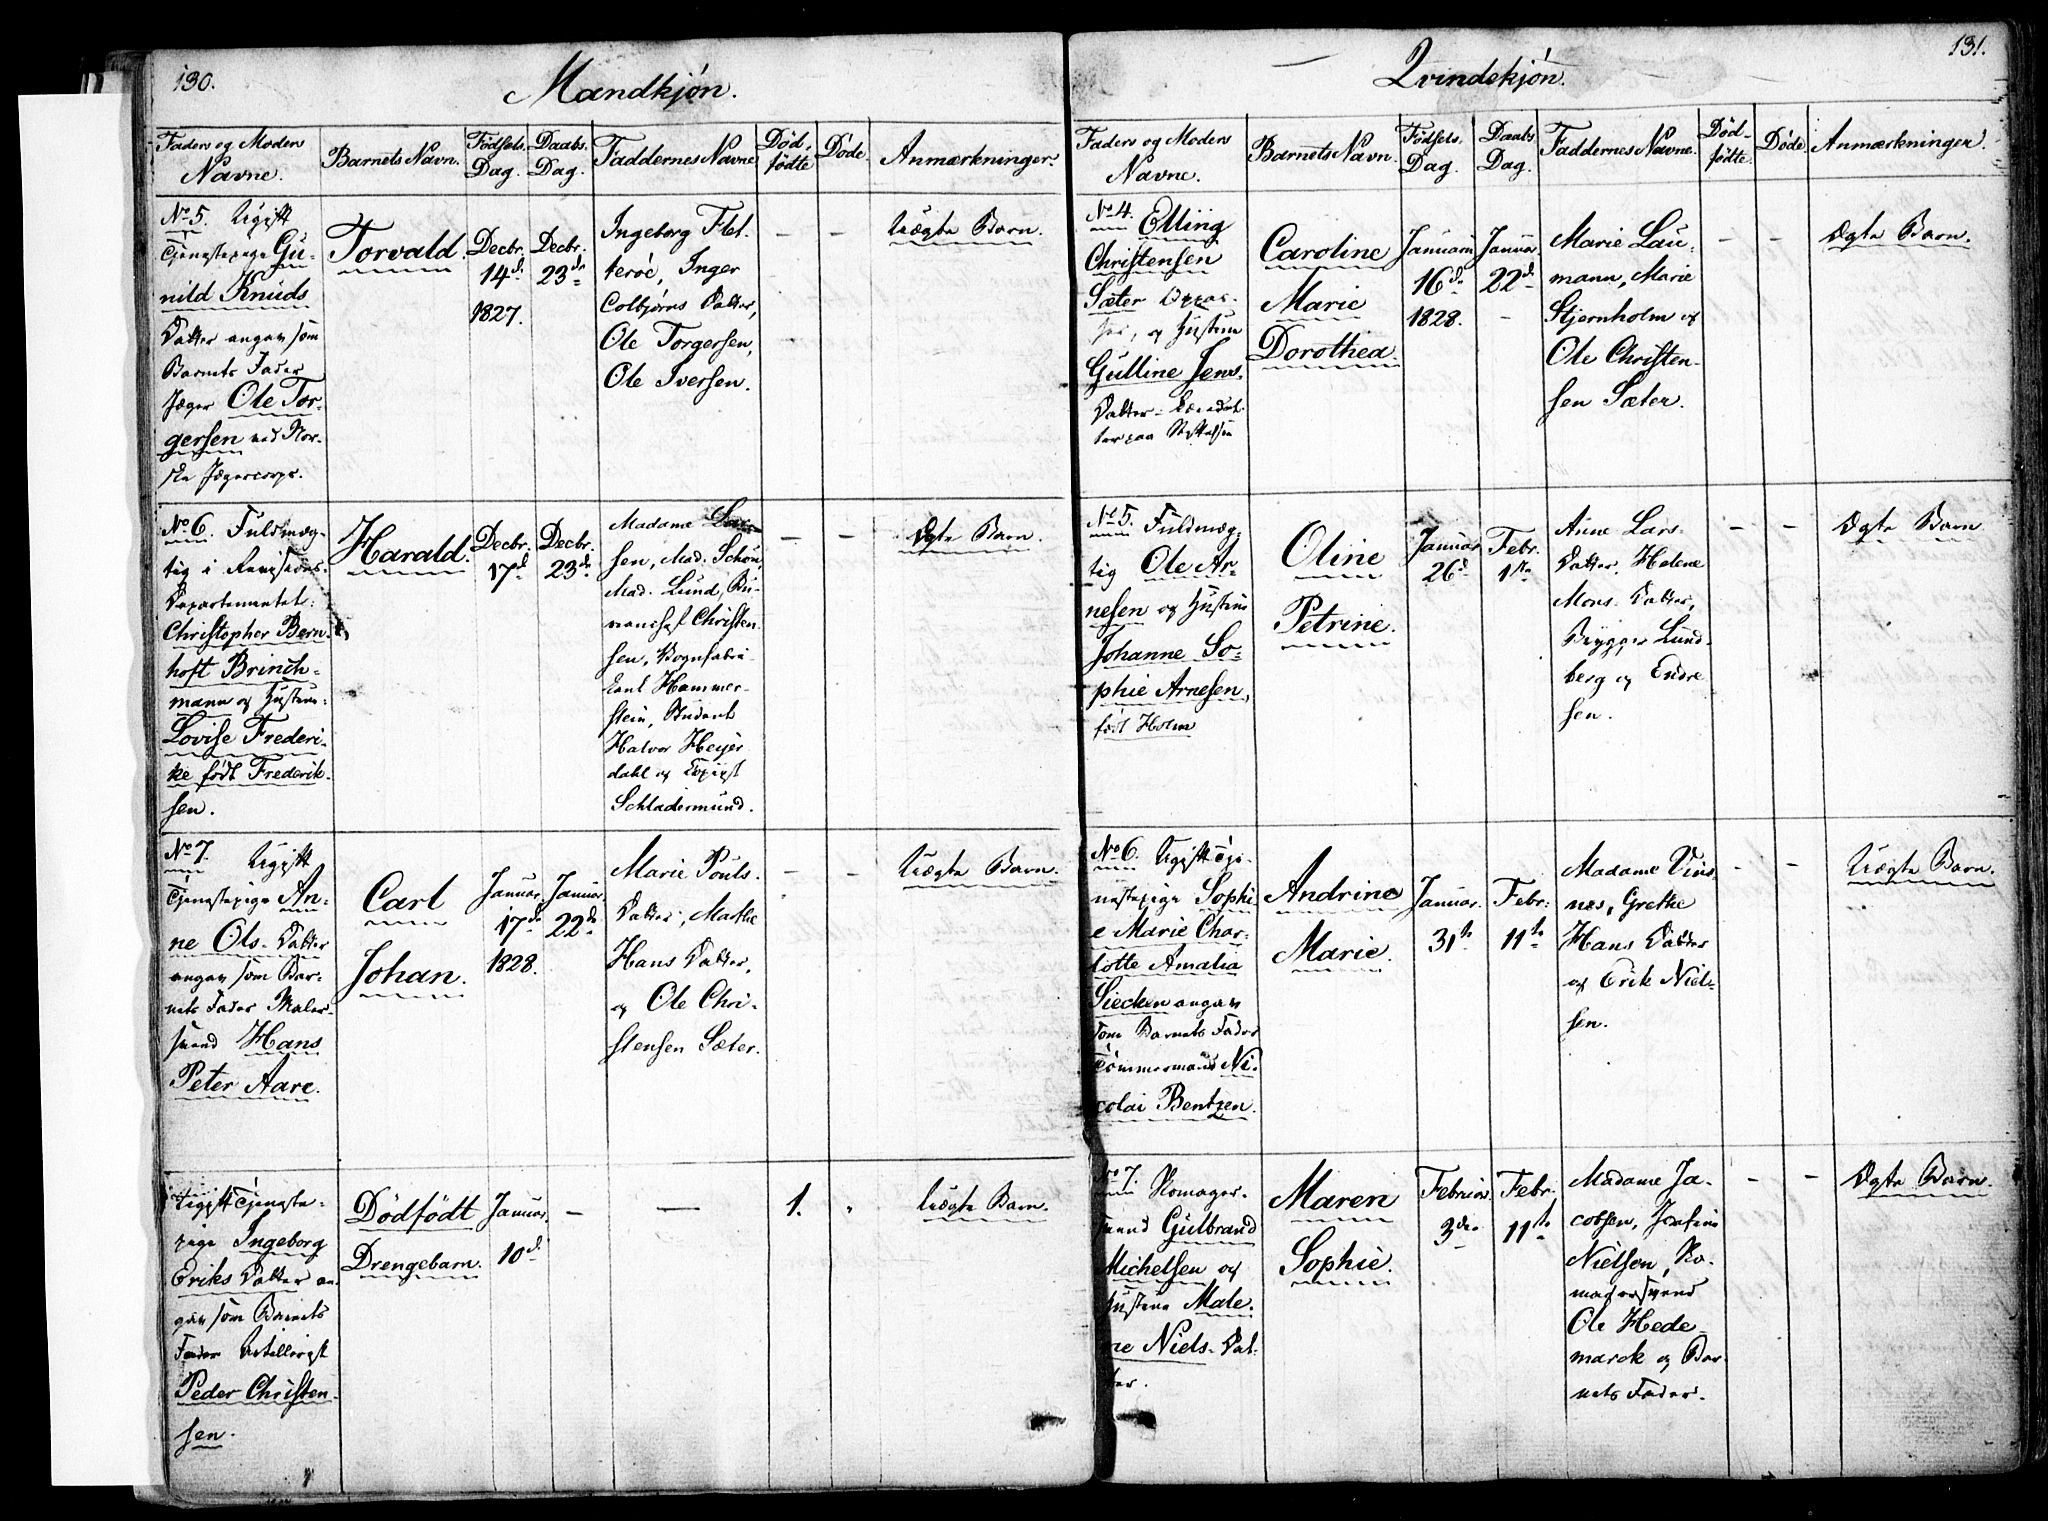 130.
Mandkjön.
Faders og Moders
Navne.
Barnets Navn.
Födsels
Dag.
Daabs.
Dag.
Faddernes Navne
Död
födte
Döde.
Anmærkninger.
No 5. Ugift
Tjenestepige Gu-
nild Knuds
Datter angav som
Barnets Fader
Jæger Ole Tor-
gersen ved Nor-
ske Jægercorps.
Torvald.
Decbr.
14de
1827.
Decbr.
23de
Ingeborg Flet-
teröe, Inger
Colbjörns Datter,
Ole Torgersen,
Ole Iversen.
— —
Uægte Barn.
No 6. Fuldmæg-
tig i Revisions-
Departementet:
Christopher Bern-
hoft Brinch-
mann og Hustrue:
Lovise Frederi-
ke födt Frederik-
sen.
Harald.
Decbr.
17d
Decbr.
23de
Madame Lar-
sen, Mad. Schöu,
Mad. Lund,
Christen-
sen, Vognfabri-
kant Hammer-
stein, Student
Halvor Heyer
dahl og Copiist
Schladermund.
— —
Ægte Barn.
No 7. Ugift
Tjenestepige An-
ne Ols- Datter
angav som Bar-
nets Fader Maler-
svend Hans
Peter Aare.
Carl
Johan.
Januar.
17de
1828.
Januar.
22de
Marie Pouls-
Datter, Mathe
Hans Datter,
og Ole Chri-
stensen Sæter.
— —
Uægte Barn.
Ugift Tjeneste-
pige Ingeborg
Eriks Datter an-
gav som Barnets
Fader Artillerist
Peder Christen-
sen.
Dödfödt
Drengebarn.
Januar.
10d.
—
—
1.
Uægte Barn.
131.
Qvindekjön.
Faders og Moders
Navne.
Barnets Navn.
Födsels.
Dag.
Daabs
Dag.
Faddernes Navne.
Död-
födte
Döde.
Anmærkninger.
No 4. Elling
Christensen
Sæter
og Hustrue
Gulline Jens-
Datter-
Caroline
Marie
Dorothea.
Januarii
16de
1828.
Januar.
22de
—
Marie Lau-
mann, Marie
Stjernholm og
Ole Christen-
sen Sæter.
— —
Ægte Barn.
No 5. Fuldmæg-
tig Ole Ar-
nesen og Hustrue
Johanne So-
phie Arnesen,
født Holm
Oline
Petrine.
Januar
26d
Febr.
1ste
Anne Lars-
Datter, Helene
Mons- Datter,
Brygger Lund-
berg og Endre
sen.
— —
Ægte Barn
No 6. Ugift Tje-
nestepige Sophi-
e Marie Char-
lotte Amalia
Siecken angav
som Barnets Fader
Tömmermand Ni-
colai Bentzen.
Andrine
Marie.
Januar.
31te
Febr:
11te
Madame Vins-
nes, Grethe
Hans Datter
og Erik Niel-
sen.
— —
Uægte Barn.
No 7. Skomager-
svend Gulbrand
Michelsen og
Hustrue Male-
ne Niels- Dat-
ter.
Maren
Sophie.
Februar
3die
Febr.
11te
Madame Ja-
cobsen, Josefine
Nielsen, Sko-
magersvend
Ole Hede-
marck og Bar-
nets Fader.
— —
Ægte Barn.